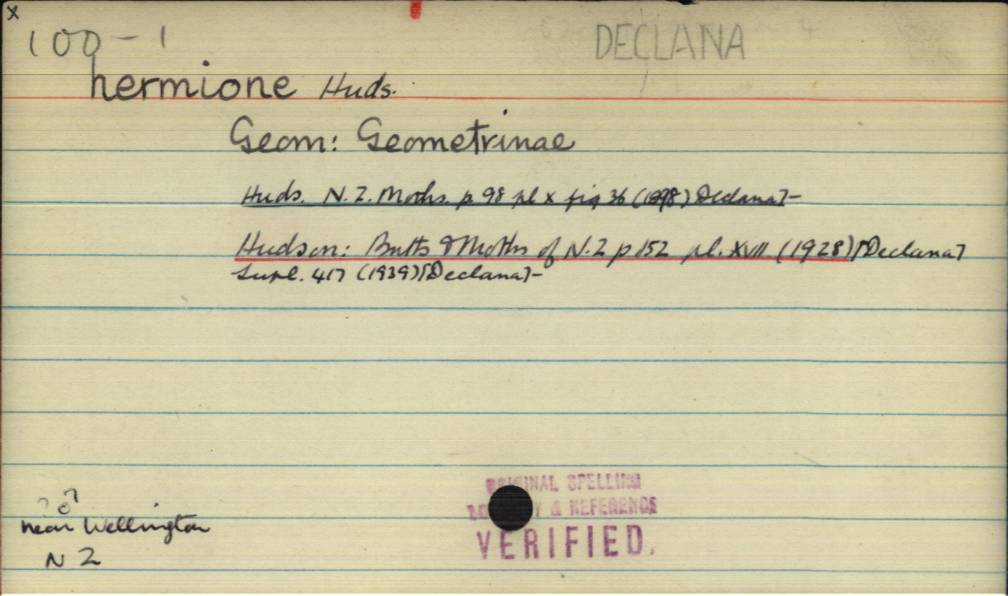 x
100-1 DECLANA
hermione Huds.
Geom: Geometrinae
Huds. N.Z. Moths. p 98 pl x fig 36 (1898) Declana]-
Hudson: Butts & Moths of N.Z p 152 pl. XVII (1928) [Declana]
Supl. 417 (1939) [Declana]-
? ♂
near Wellington
N Z
ORIGINAL SPELLING
& REFERENCE
VERIFIED.